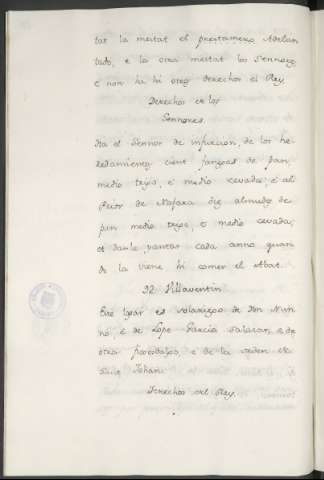 tar la meitat el prestamero Adelan
tado, e la otra meitat los Sennores,
e non ha hi otros derechos el Rey
Derechos de los
Sennores.
Ha el Sennor de infurcion, de los he
redamientos cient fanegas de pan,
medio trigo, é medio cevada; é al
Prior de Naxara diz almudes de
pan medio trigo, é medio cevada;
et danle yantar cada anno quan
do la viene hi comer el Abat.
Villaventin
Este logar es solariego de Don Nun
no, é de Lope Garcia Salazar, é de
otros fijosdalgo, é de la orden de
Sant Johan.
Derechos del Rey.